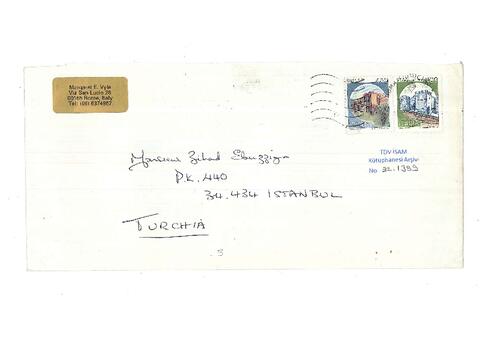 Margaret E. Vyle
Via San Lucio 28
00165 Rome, Italy
Tel: (06) 6374987
TDV İSAM
Kütüphanesi Arşivi
No 32.1399
Monsieur Zihad Ebuzziya
P.K. 440
34.434 ISTANBUL
TURCHIA